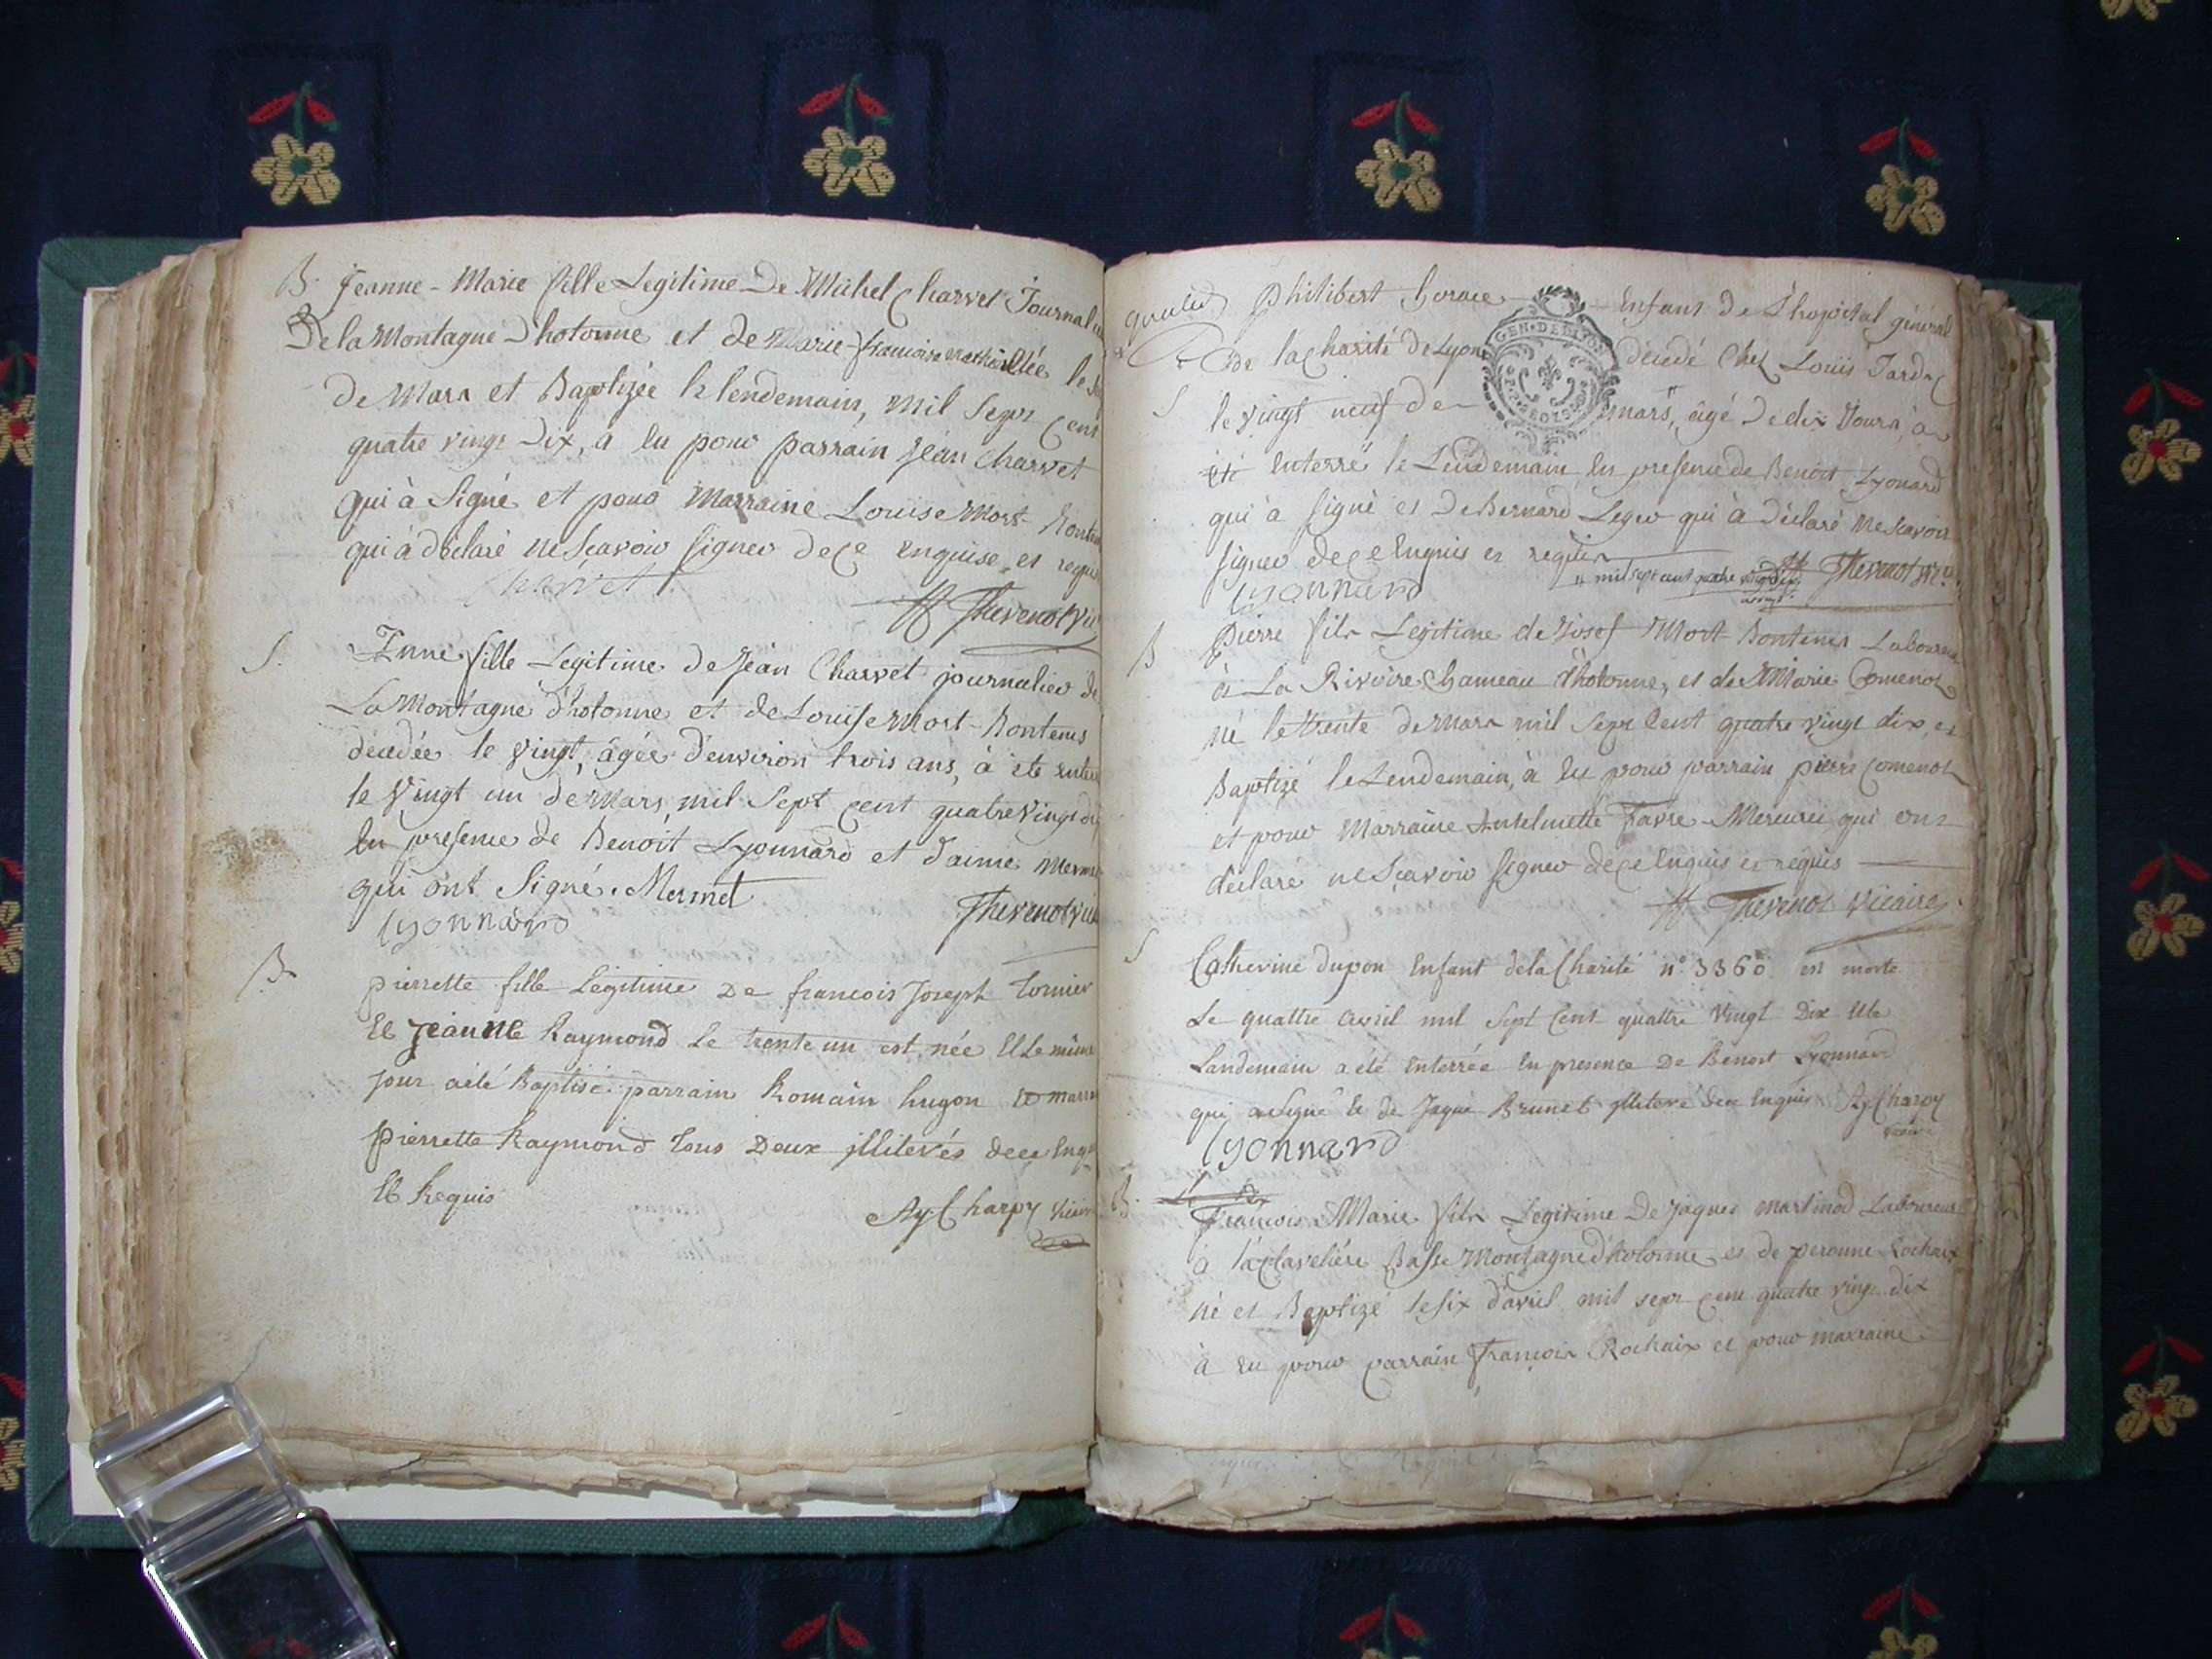 B. Jeanne-Marie fille Legitime De Michel Charvet Journal
De la Montagne Dhotonne et de Marie-francoise née le
De Mars et Baptizée le lendemain, mil Sept Cent
quatre vingt Dix, a eu pour parrain Jean Charvet
qui à Signé et pour Marraine Louise Mort-
qui à déclaré ne Sçavoir signer de ce enquise et requi
Charvet
Thevenot vic
S. fille Legitime de Jean Charvet journalier de
La Montagne d'hotonne et de Louise Mort-Bontems
décedée le vingt, âgée d'environ trois ans, à été
le Vingt un de Mars, mil Sept Cent quatre Vingt di
En presence de Benoit Lyonnard et d'aimé
qui ont Signé. Mermet
Lyonnard Thevenot vic
B pierrette fille Légitime De francois Joseph
Et Jeanne Raymond Le trente un est née Et Le même
Jour a été Baptisé. parrain Romain hugon Et marra
Pierrette Raymond tous Deux illiterés de ce Enq
Et Requis
Ay. Charpy vicaire
Philibert Enfant de L'hopital général
De la Charité de Lyon décédé Chez Louis
S le vingt neuf de mars, âgé De dix Jours, à
été Enterré le Lendemain, En presence de Benoit Lyonard
qui à signé et De Bernard Leger qui à déclaré ne Scavoir
signer de ce Enquis et requis
mil sept cent quatre vingt dix Thevenot vic.
Lyonnard
B Pierre fils Legitime de Josef Mort-Bontems Laboureur
à La Rivoire hameau d'hotonne, et de Marie Comenol
né le trente de Mars mil Sept Cent quatre vingt dix, et
Baptizé le Lendemain, à Eu pour parrain pierre Comenol
et pour Marraine Antelmette Favre-Mercuri qui ont
déclaré ne Sçavoir signer de ce Enquis et requis
Thevenot Vicaire
S Catherine dupon Enfant de la Charité n° 3360 est morte
Le quattre avril mil Sept Cent quattre Vingt Dix Et le
Landemain a été Enterrée En presence De Benoit Lyonnard
qui a Signé Et de Jaque Brunet illiteré de ce Enquis Ay. Charpy
vicaire
Lyonnard
B. Francois-Marie fils Legitime De Jaques Martinod Laboureur
à la Claveliére Basse Montagne d'hotonne et de peronne Rochaix
né et Baptizé le six d'avril mil sept cent quatre vingt dix
à eu pour parrain François Rochaix et pour marraine